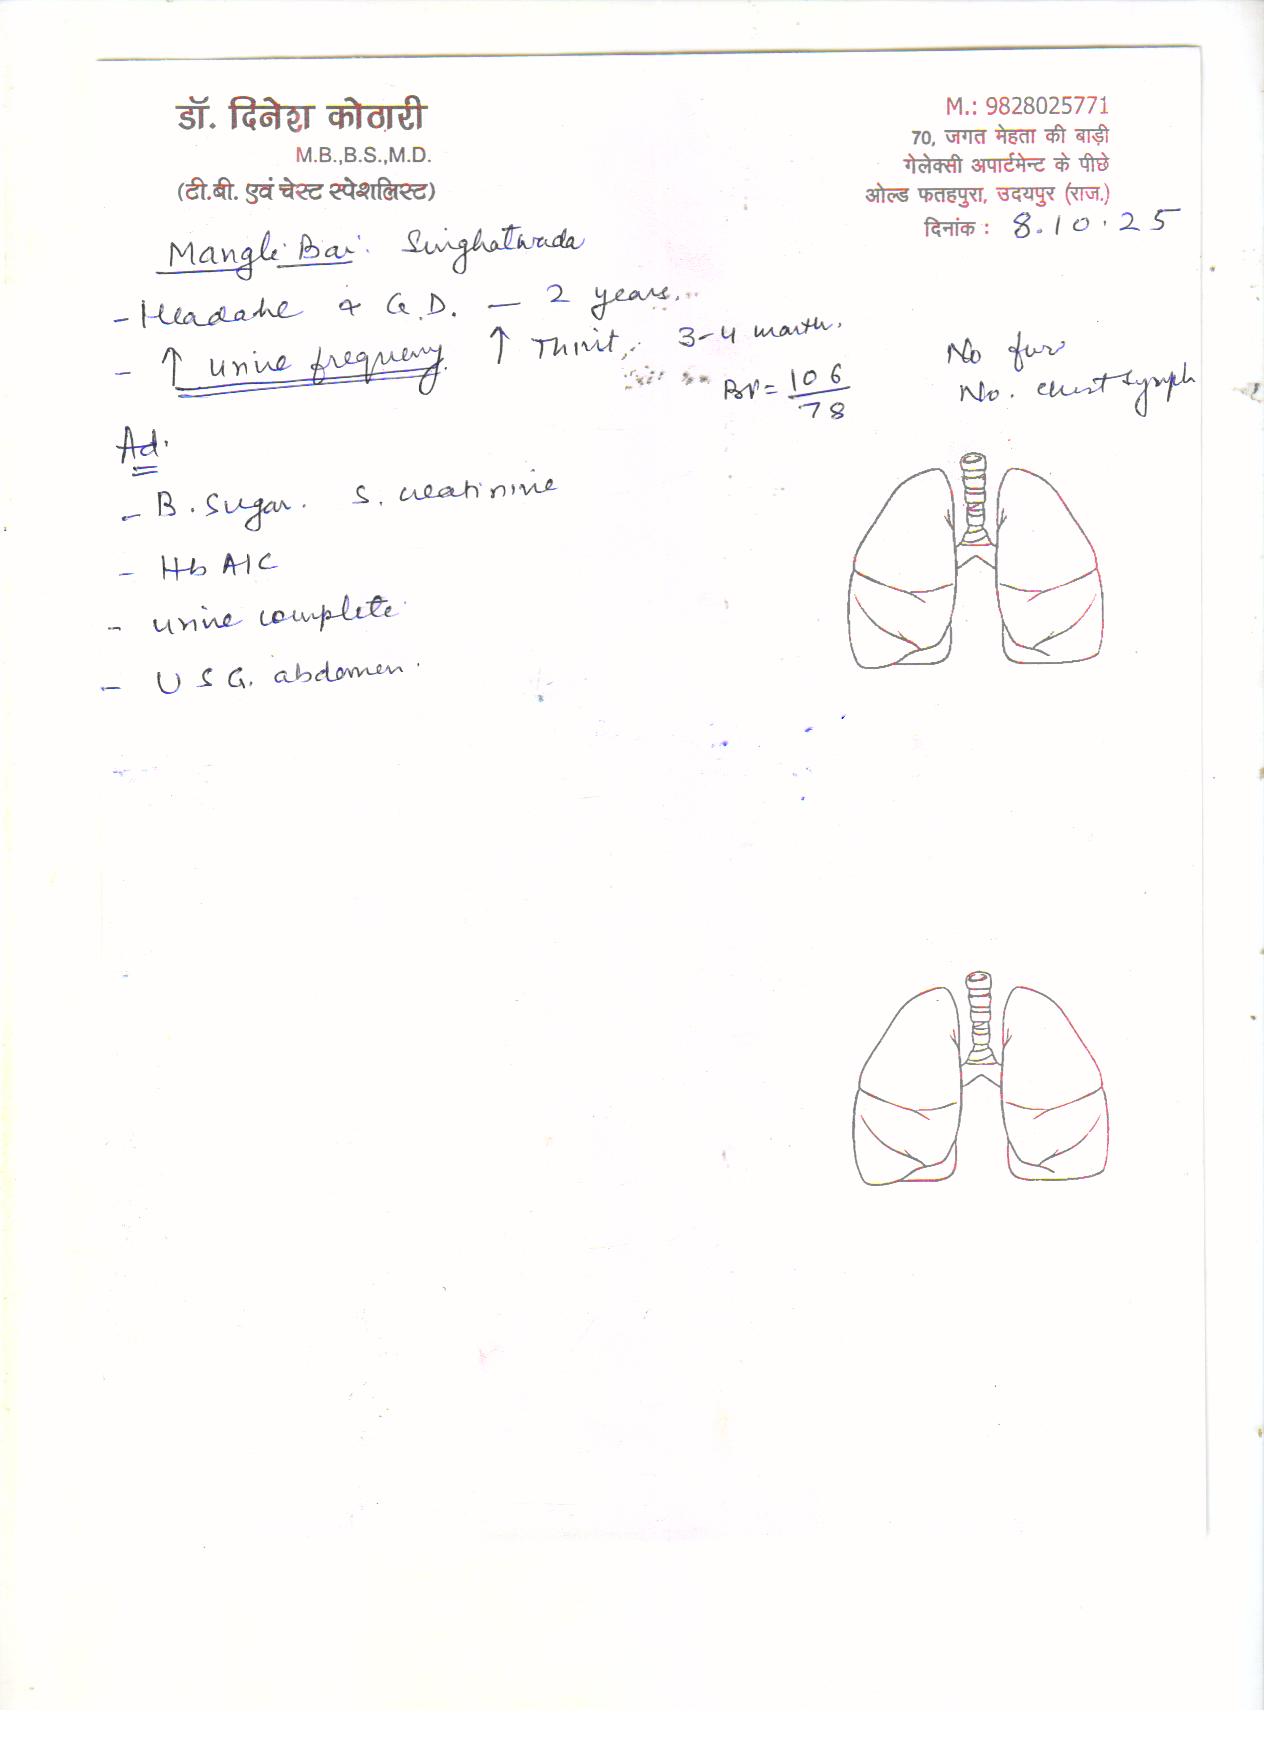 डॉ. दिनेश कोठारी
M.B.,B.S.,M.D.
(टी.बी. एवं चेस्ट स्पेशलिस्ट)
M.: 9828025771
70, जगत मेहता की बाड़ी
गेलेक्सी अपार्टमेन्ट के पीछे
ओल्ड फतहपुरा, उदयपुर (राज.)
दिनांक : 8.10.25
Mangli Bai. Singhatwada
- Headache + G.D. — 2 years.
- ↑ urine frequency. ↑ Thirst, 3-4 month.
BP = 106/78
No fever
No. chest symph
Ad.
- B. Sugar. S. creatinine
- Hb A1C
- urine complete
- U S G. abdomen.